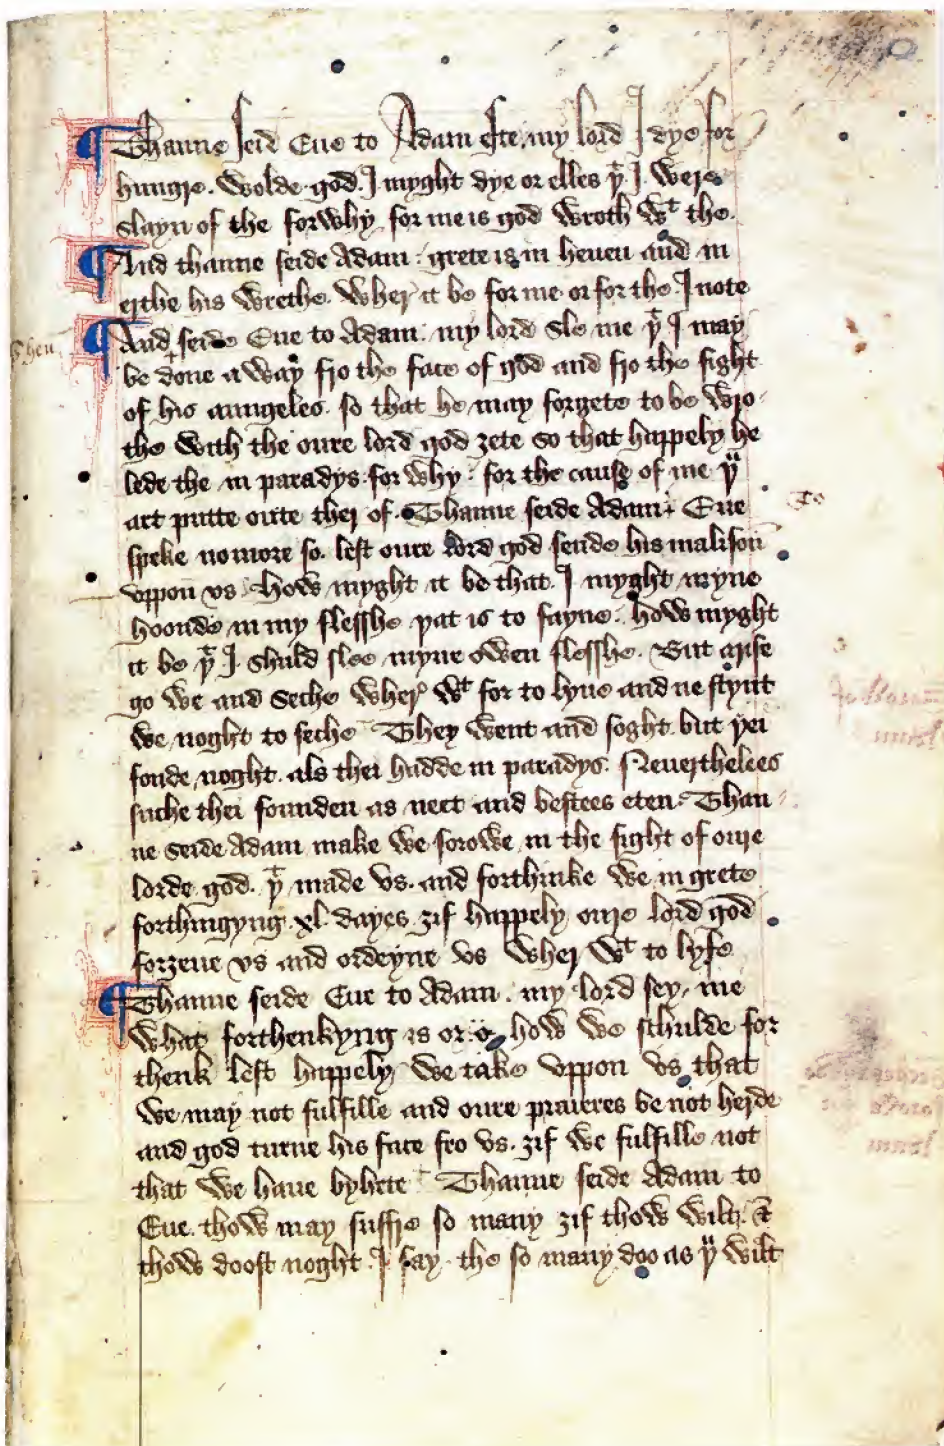 ¶ Thanne seid Eue to Adam my lord I dye for
hungre. Wolde god. I myght dye or elles þͭ I were
slayn of the forwhy for me is god wroth wͭ the.
¶ And thanne seide Adam: grete is in heuen and in
erthe his wrethe. Wher it be for me or for the I note
¶ And seide Eue to Adam: my lord sle me þͭ I may
be done a way fro the face of god and fro the sight
of his aungeles. so that he may forgete to be wro
the with the oure lord god ȝete so that happely he
lede the in paradys. forwhy: for the cause of me þᵘ
art putte oute ther of. Thanne seide Adam Eue
speke nomore so. lest oure lord god sende his malison
vppon vs. How myght it be that. I myght myne
hoonde in my flesshe þat is to sayne. how myght
it be þͭ I shuld slee myne owen flesshe. But arise
go we and seche wher wͭ for to lyue and ne stynt
we noght to seche They went and soght. but þei
fonde noght. als thei hadde in paradys. Neuerthelees
suche thei founden as neet and beestes eten. Than
ne seide Adam make we sorowe in the sight of oure
lorde god. þͭ made vs. and forthinke we in grete
forthingyng. xl. dayes. ȝif happely oure lord god
forȝeue vs and ordeyne vs wher wͭ to lyfe
¶ Thanne seide Eue to Adam. my lord sey me
what forthenkyng is or how we schulde for
thenk lest happely we take vppon vs that
we may not fulfille and oure praieres be not herde
and god turne his face fro vs. ȝif we fulfille not
that we haue byhete Thanne seide Adam to
Eue. thow may suffre so many ȝif thow wilt. &
thow doost noght. I say the so many doo as þᵘ wilt
To